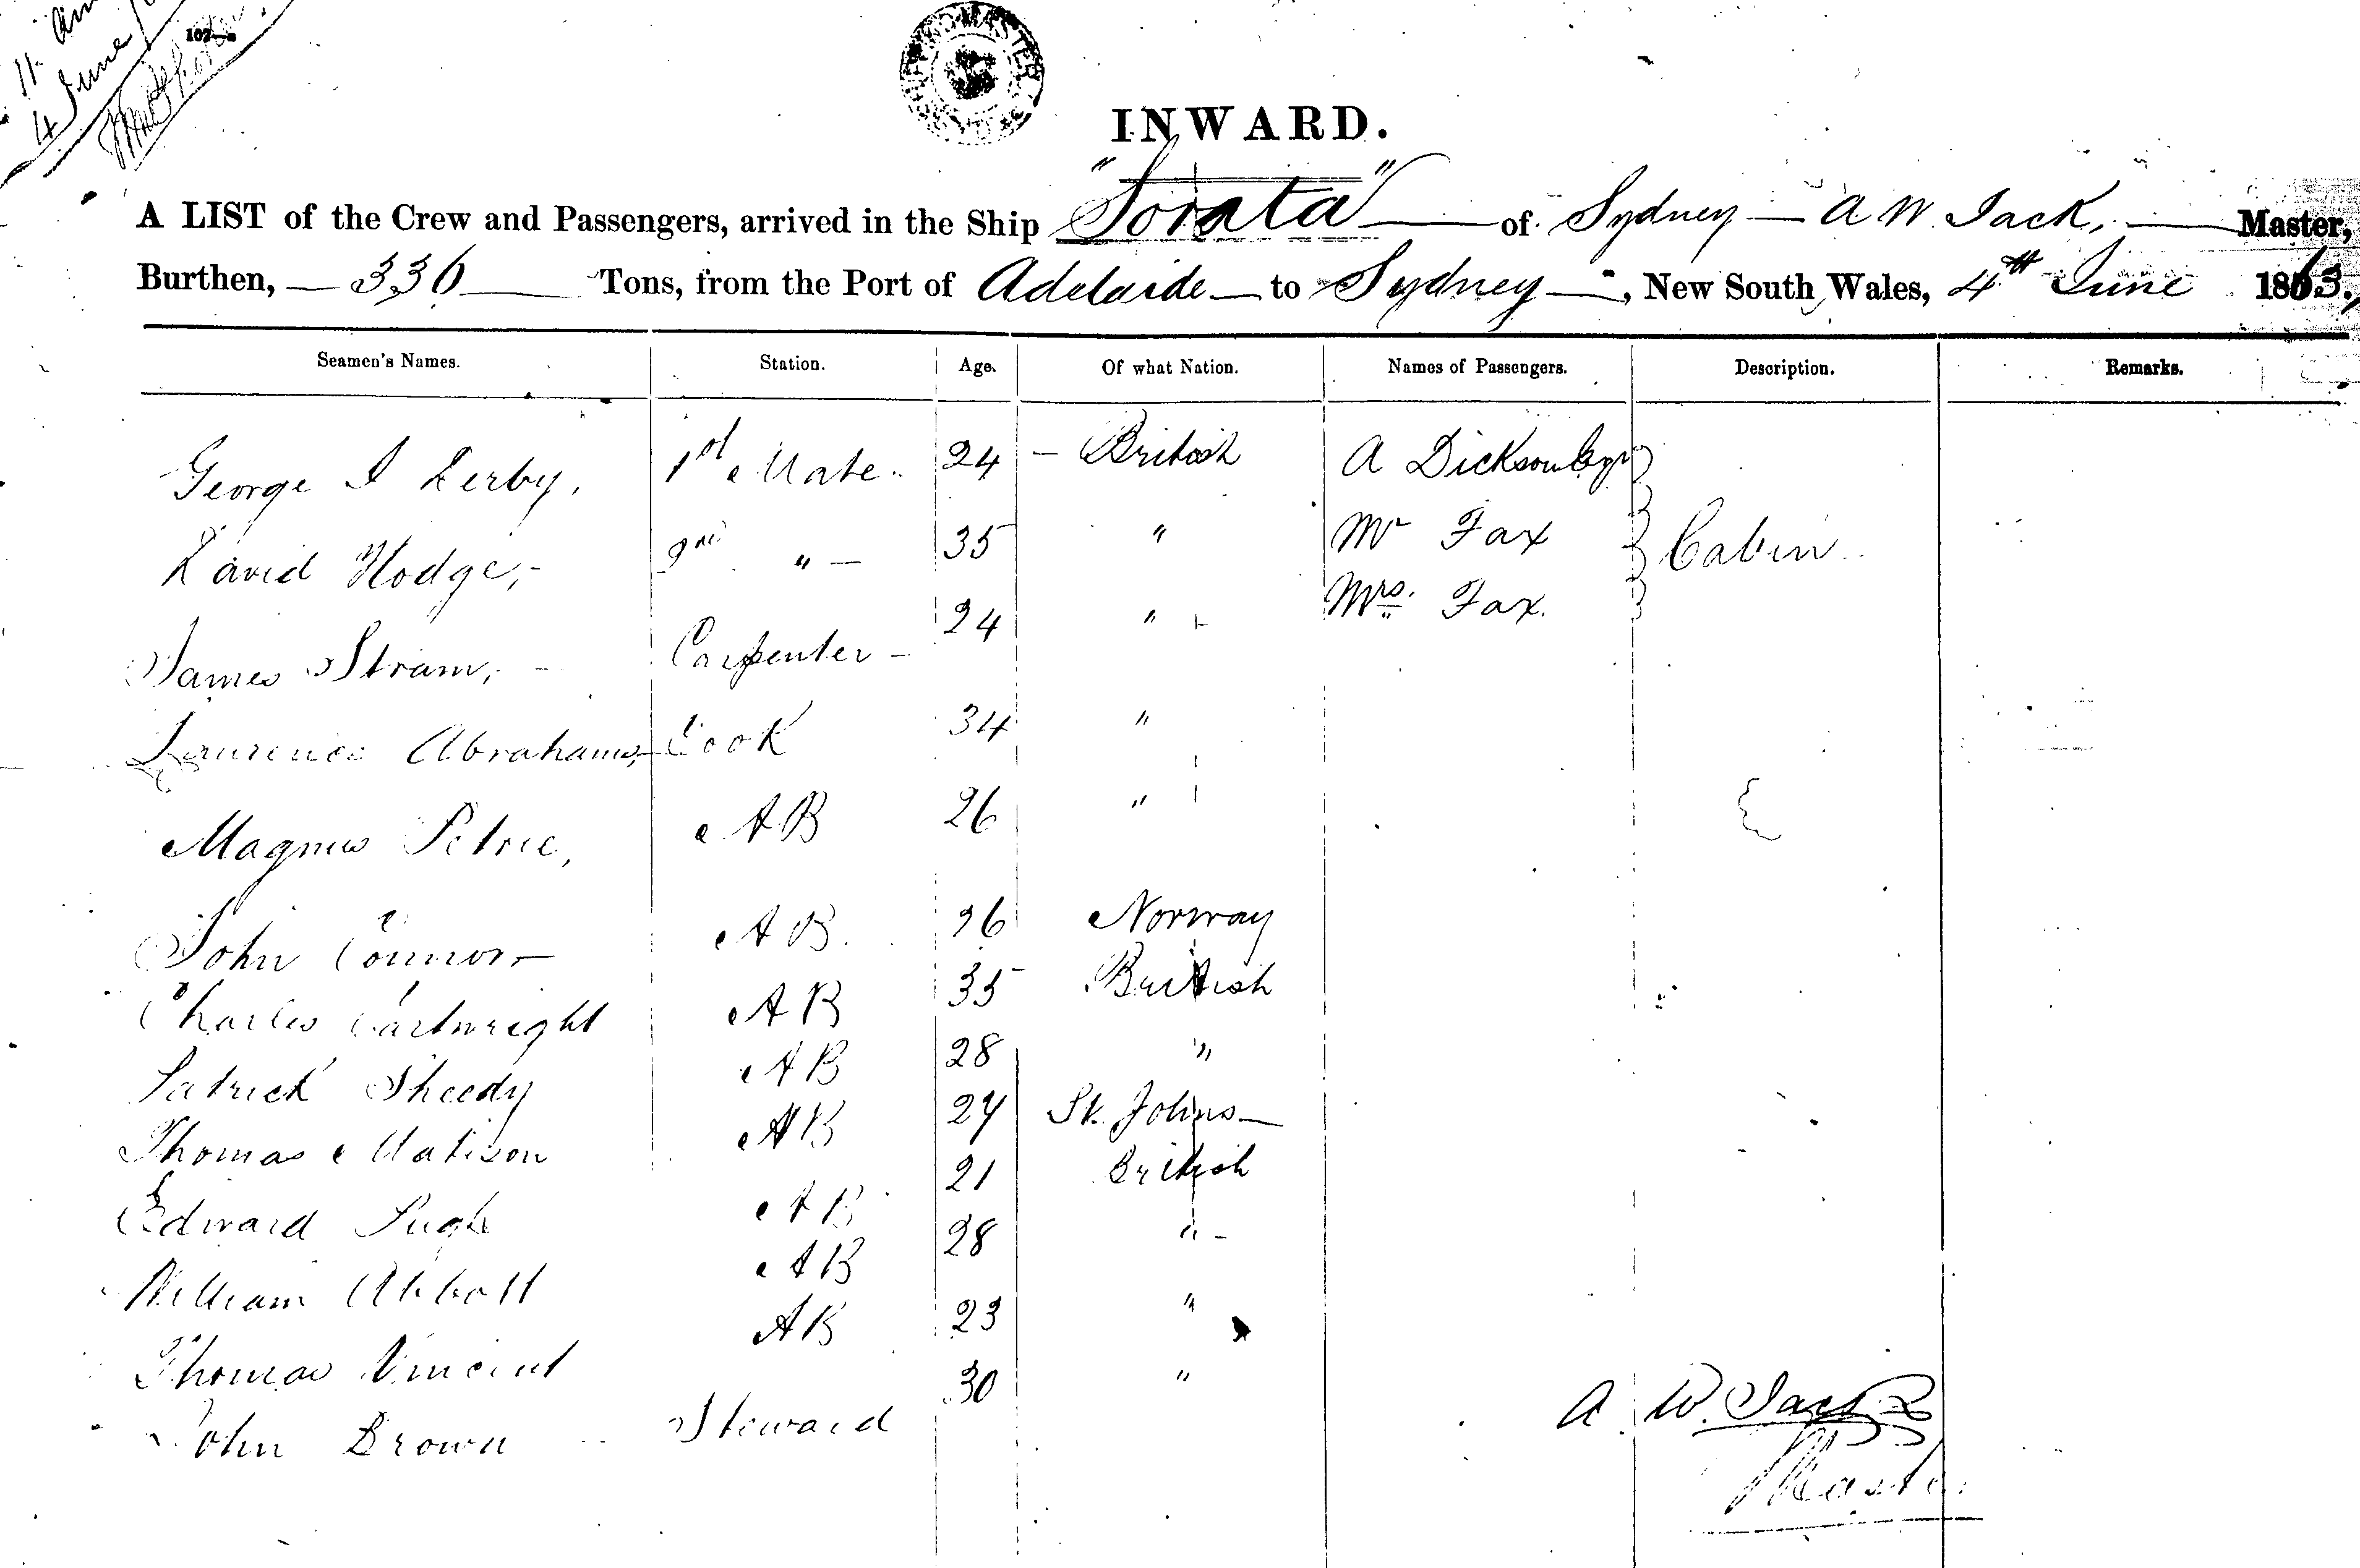 11 am
4 June
102—a
INWARD.
A LIST of the Crew and Passengers, arrived in the Ship "Sorata" of Sydney — A W. Jack, Master,
Burthen, — 336 — Tons, from the Port of Adelaide — to Sydney —, New South Wales, 4th June 1863.
Seamen's Names. Station. Age. Of what Nation. Names of Passengers. Description. Remarks.
George I Derby, 1st Mate. 24 — British A Dickson Esqr
David Hodge, 2nd " — 35 " Mr Fax Cabin
James Stram, Carpenter — 24 " Mrs. Fax.
Laurence Abrahams, Cook 34 "
Magnus Petrie, AB 26 "
John Connor AB. 26 Norway
Charles Cartwright AB 35 British
Patrick Sheedy AB 28 "
Thomas Matison AB 24 St. Johns —
Edward Pugh AB 21 British
William Abbott AB 28 "
Thomas Vincent AB 23 "
John Brown Steward 30 "
A. W. Jack
Master